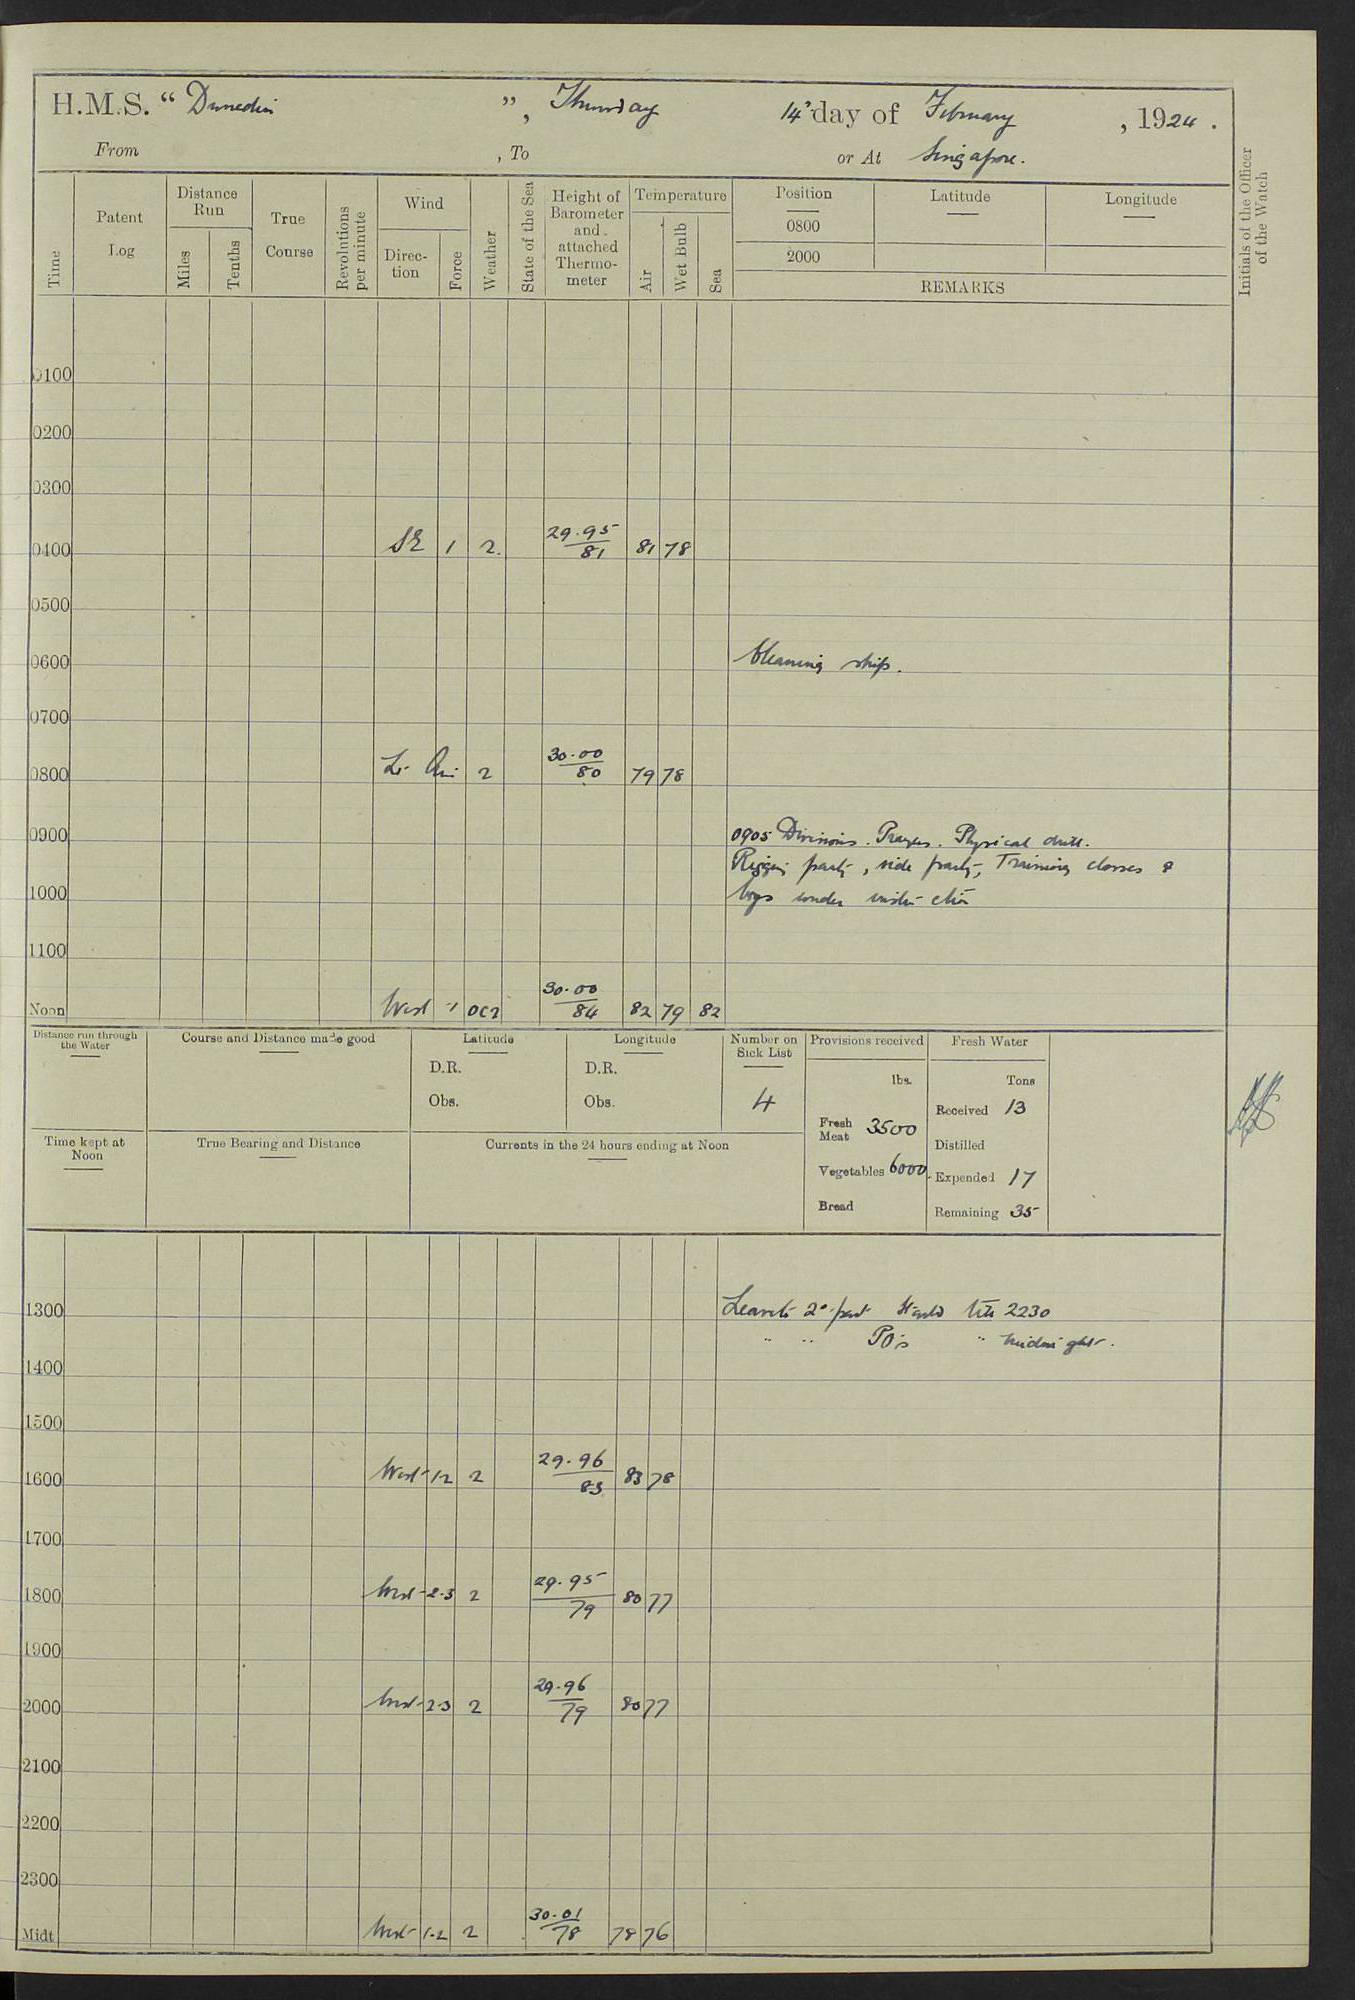 H.M.S. “ Dunedin ”, Thursday 14th day of February , 1924 .
From , To or At Singapore.
Time
Patent Log
Distance Run
Miles
Tenths
True Course
Revolutions per minute
Wind
Direc-tion
Force
Weather
State of the Sea
Height of Barometer and attached Thermo-meter
Temperature
Air
Wet Bulb
Sea
Position Latitude Longitude
0800
2000
REMARKS
Initials of the Officer of the Watch
0100
0200
0300
0400 SE 1 2 29.95/81 81 78
0500
0600 Cleaning ship.
0700
0800 Lt Air 2 30.00/80 79 78
0900 0905 Divisions. Prayers. Physical drill.
Rigging party, side party, Training classes &
1000 boys under instruction
1100
Noon West 1 30.00/84 82 79 82
Distance run through the Water
Course and Distance made good
Latitude
D.R.
Obs.
Longitude
D.R.
Obs.
Number on Sick List
4
Provisions received
lbs.
Fresh Meat 3500
Vegetables 6000
Bread
Fresh Water
Tons
Received 13
Distilled
Expended 17
Remaining 35
Time kept at Noon
True Bearing and Distance
Currents in the 24 hours ending at Noon
1300 Leave to 2nd part Starbd till 2230
" " POs " midnight.
1400
1500
1600 West 1-2 2 29.96/83 83 78
1700
1800 West 2-3 2 29.95/79 80 77
1900
2000 West 2-3 2 29.96/79 80 77
2100
2200
2300
Midt West 1-2 2 30.01/78 78 76